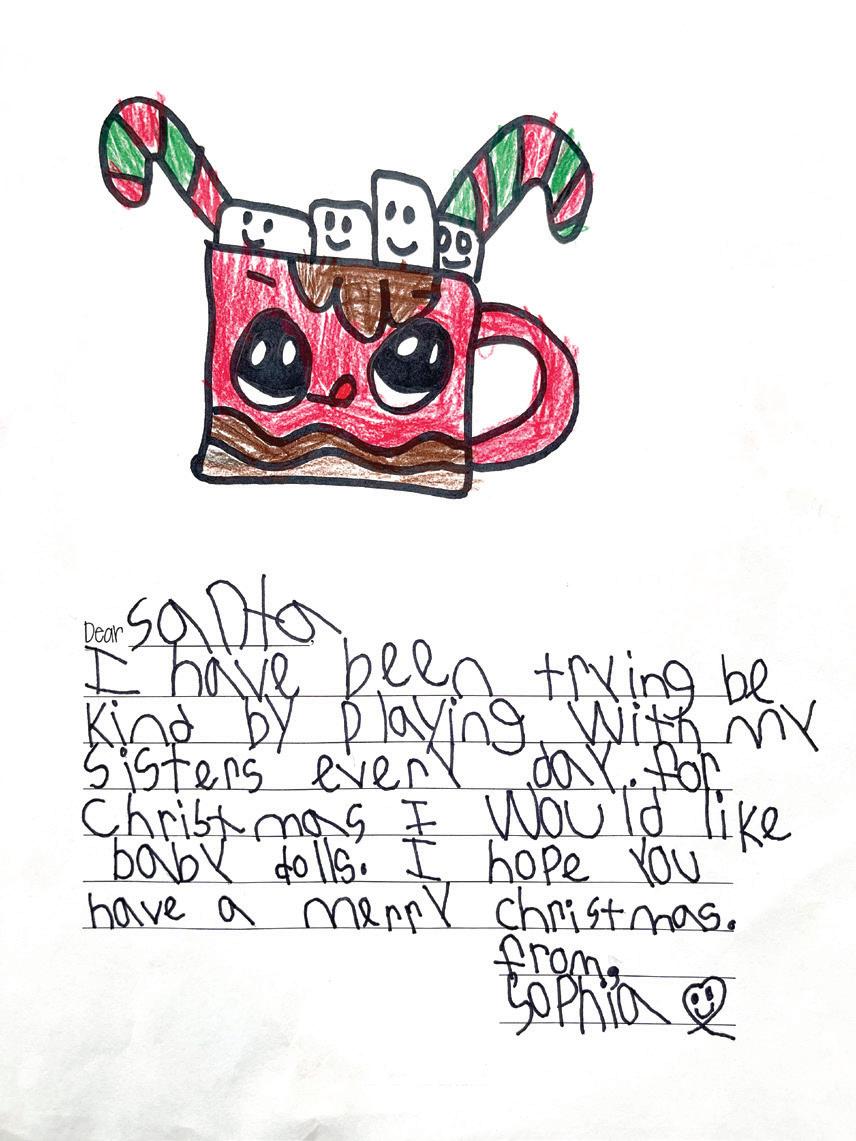 Dear Santa,
I have been trying be
kind by playing with my
sisters every day. for
Christmas I would like
baby dolls. I hope you
have a merry christmas.
from,
Sophia